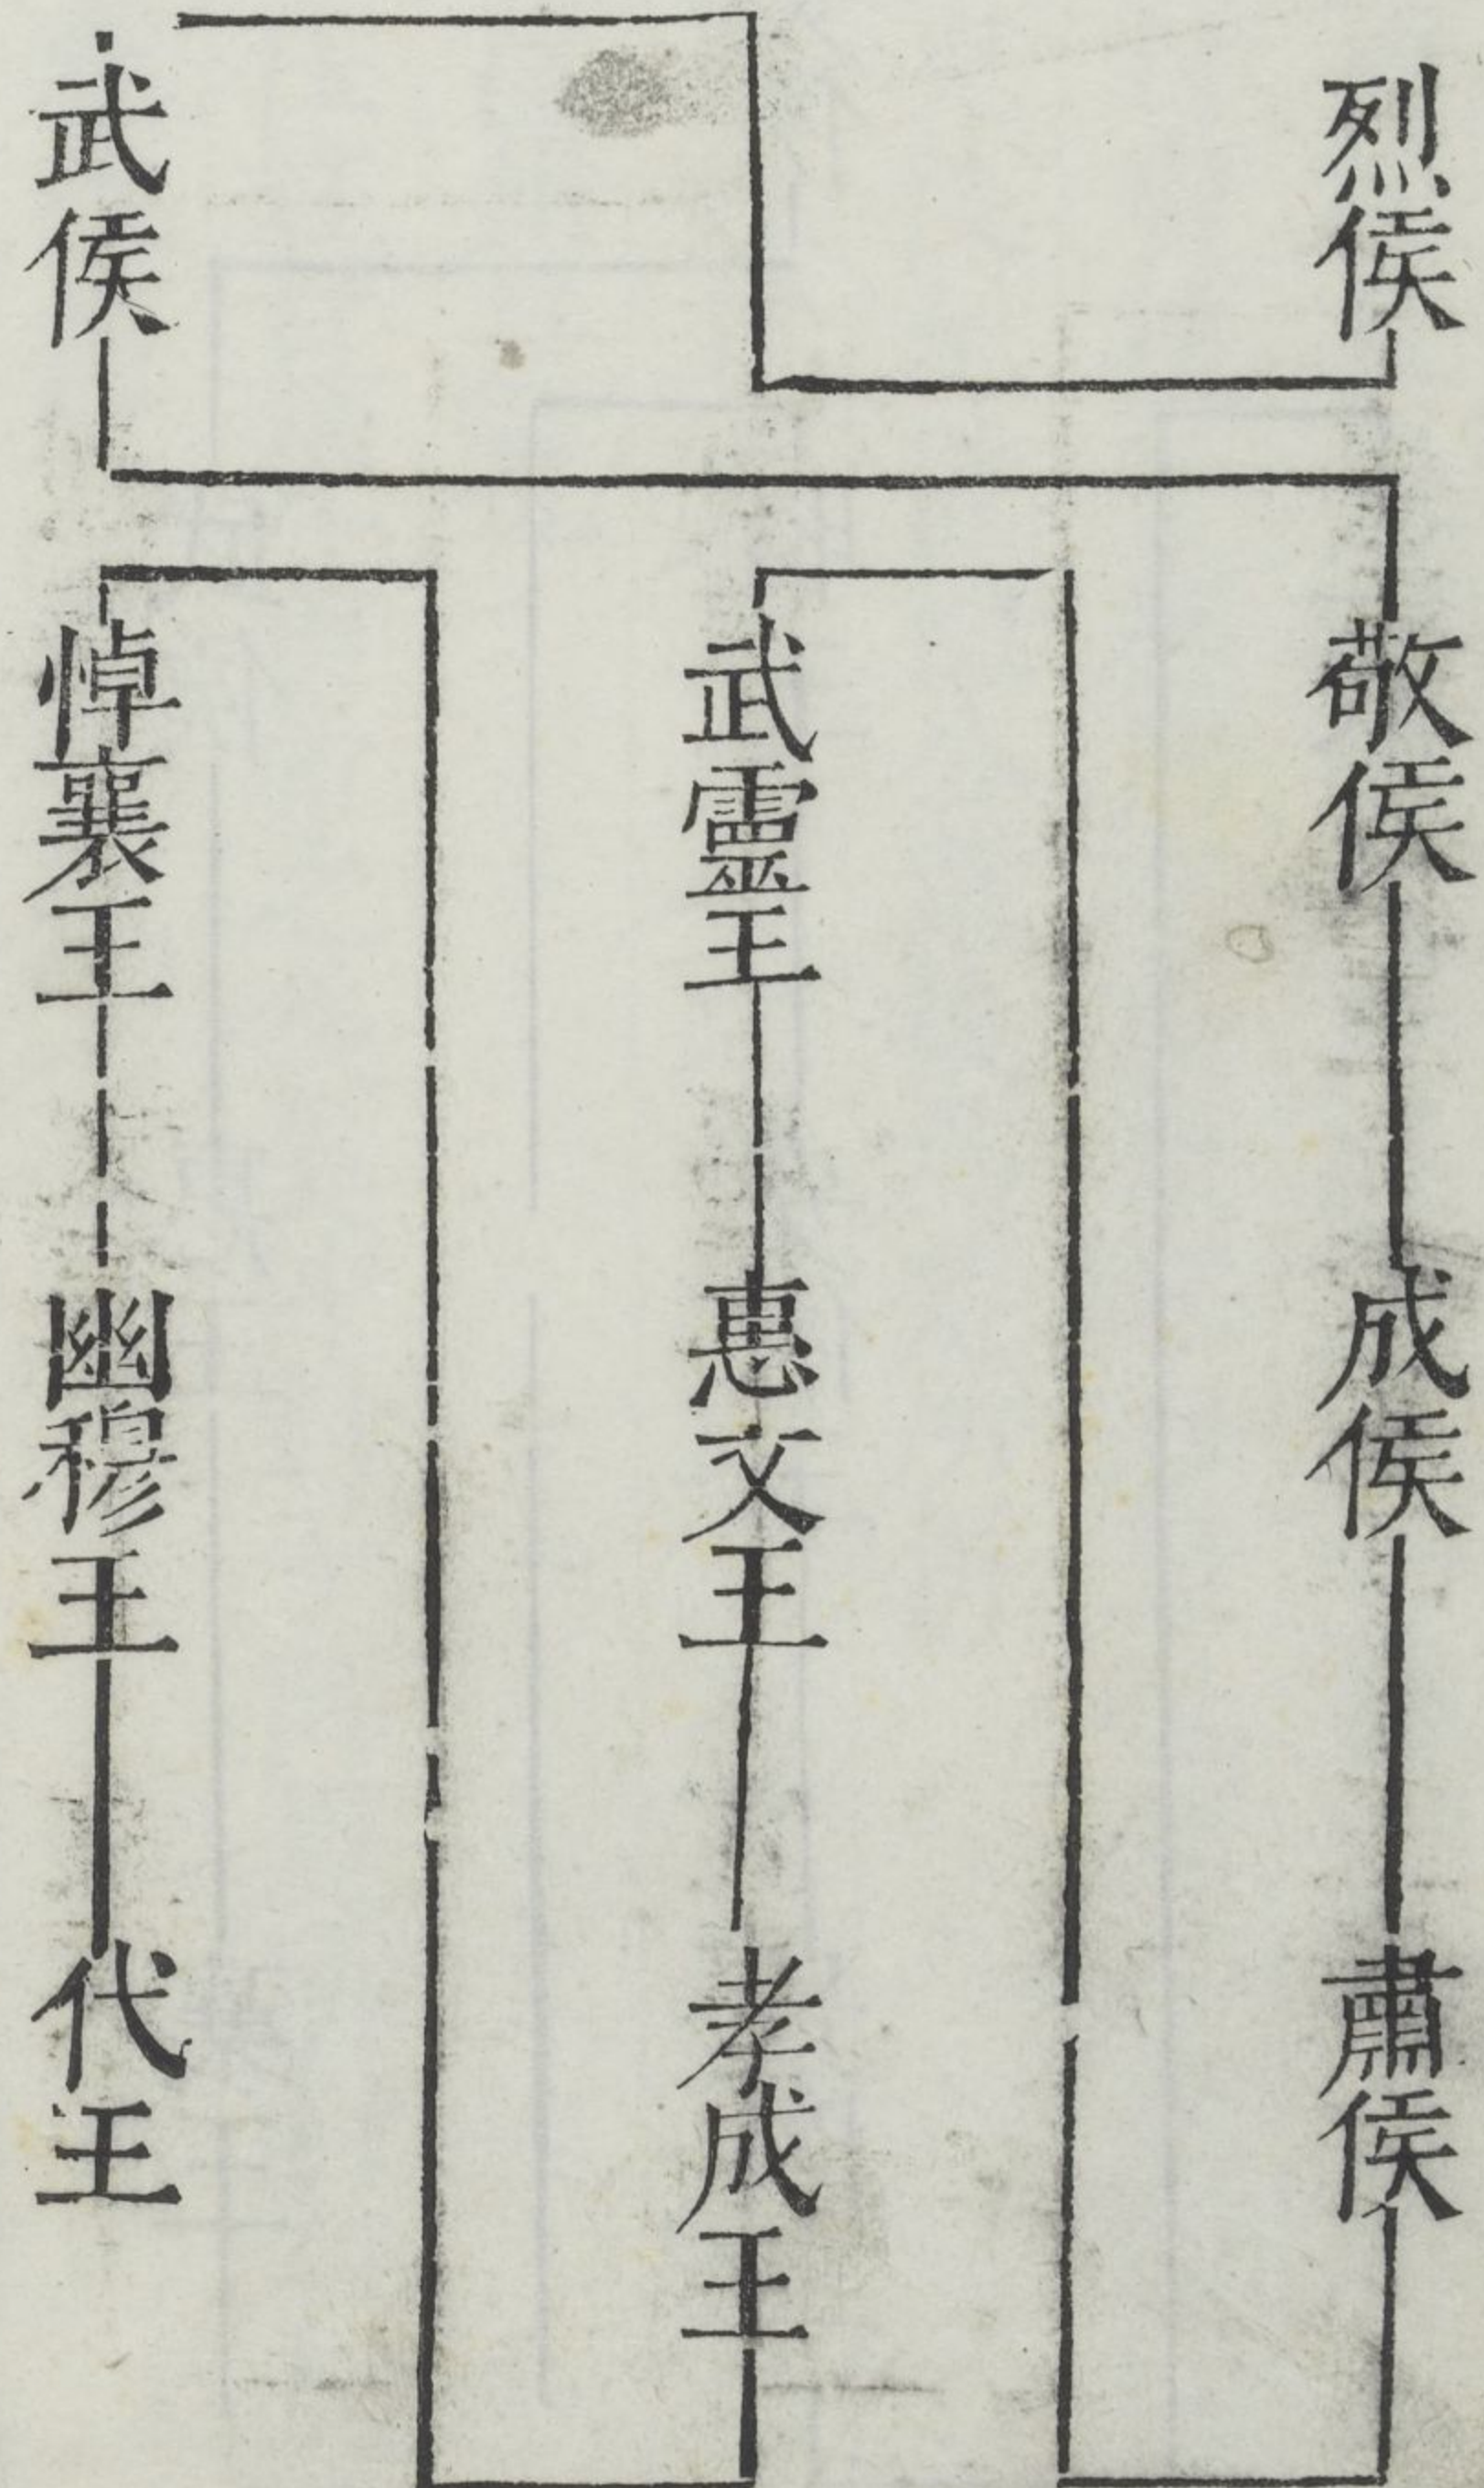 烈侯
武侯
敬侯
成侯
肅侯
武靈王
惠文王
孝成王
悼襄王
幽穆王
代王